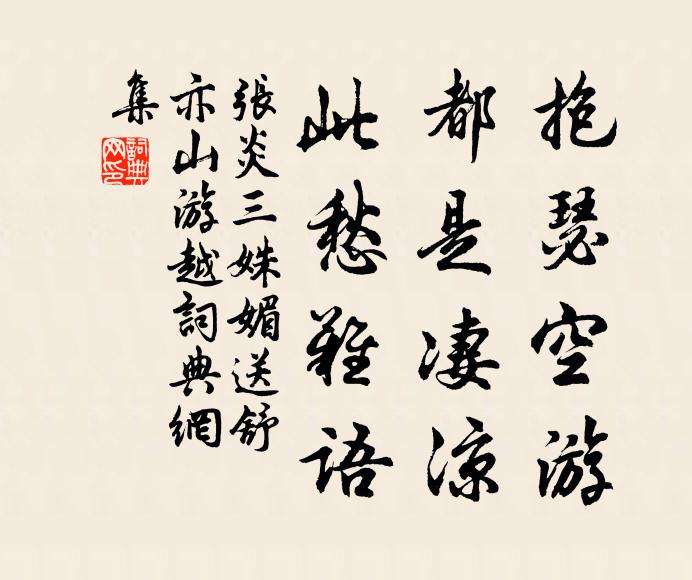 抱瑟空游
都是凄涼
此愁難語
張炎三姝媚送舒
亦山游越詞典網
集
詞典網印